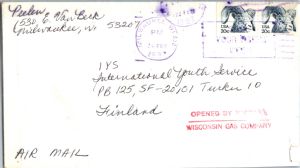 530 E. Van Beck
Milwaukee, WI 53207
IYS
International Youth Service
PB 125, SF-20101 Turku 10
Finland
OPENED BY
WISCONSIN GAS COMPANY
AIR MAIL